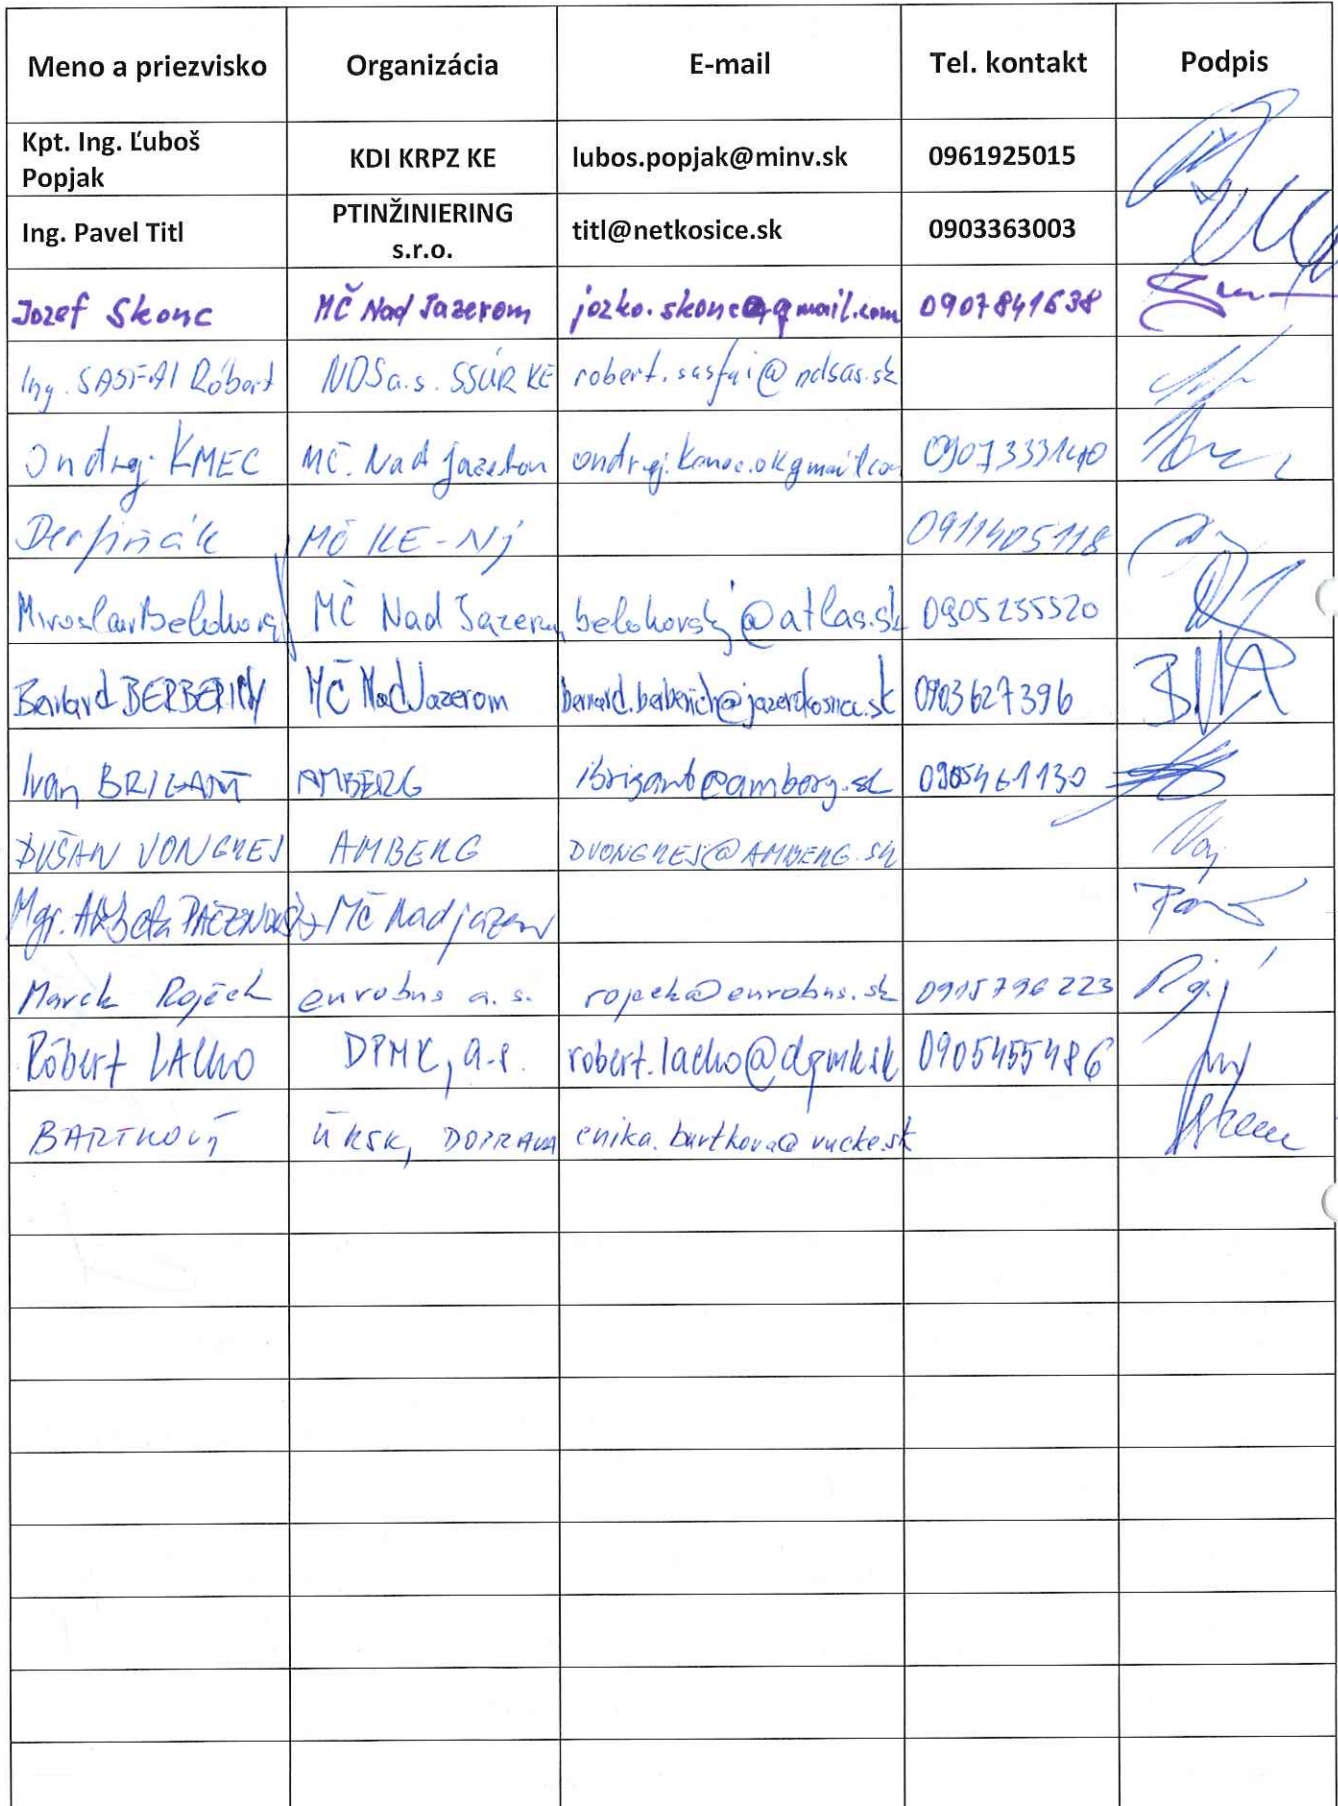 Meno a priezvisko Organizácia E-mail Tel. kontakt Podpis
Kpt. Ing. Ľuboš
Popjak KDI KRPZ KE lubos.popjak@minv.sk 0961925015
Ing. Pavel Titl PTINŽINIERING
s.r.o. titl@netkosice.sk 0903363003
Jozef Skonc MČ Nad Jazerom jozko.skonc@gmail.com 0907841638
Ing. SASFAI Róbert NDS a.s. SSÚR KE robert.sasfai@ndsas.sk
Ondrej KMEC MČ Nad Jazerom
MČ KE-NJ 0911405118
Miroslav Belohorský MČ Nad Jazerom belohorský@atlas.sk 0905255520
Bernard BERBERICH MČ Nad Jazerom bernard.berberich@jazerokosice.sk 0903627396
Ivan BRIGANT AMBERG ibrigant@amberg.sk 0905461130
DUŠAN VONGREJ AMBERG DVONGREJ@AMBERG.SK
Mgr. MČ Nad jazerom
Marek Rojček eurobus a.s. rojcek@eurobus.sk 0915796223
Róbert LACHO DPMK, a.s. robert.lacho@dpmk.sk 0905455486
DOPRAVA